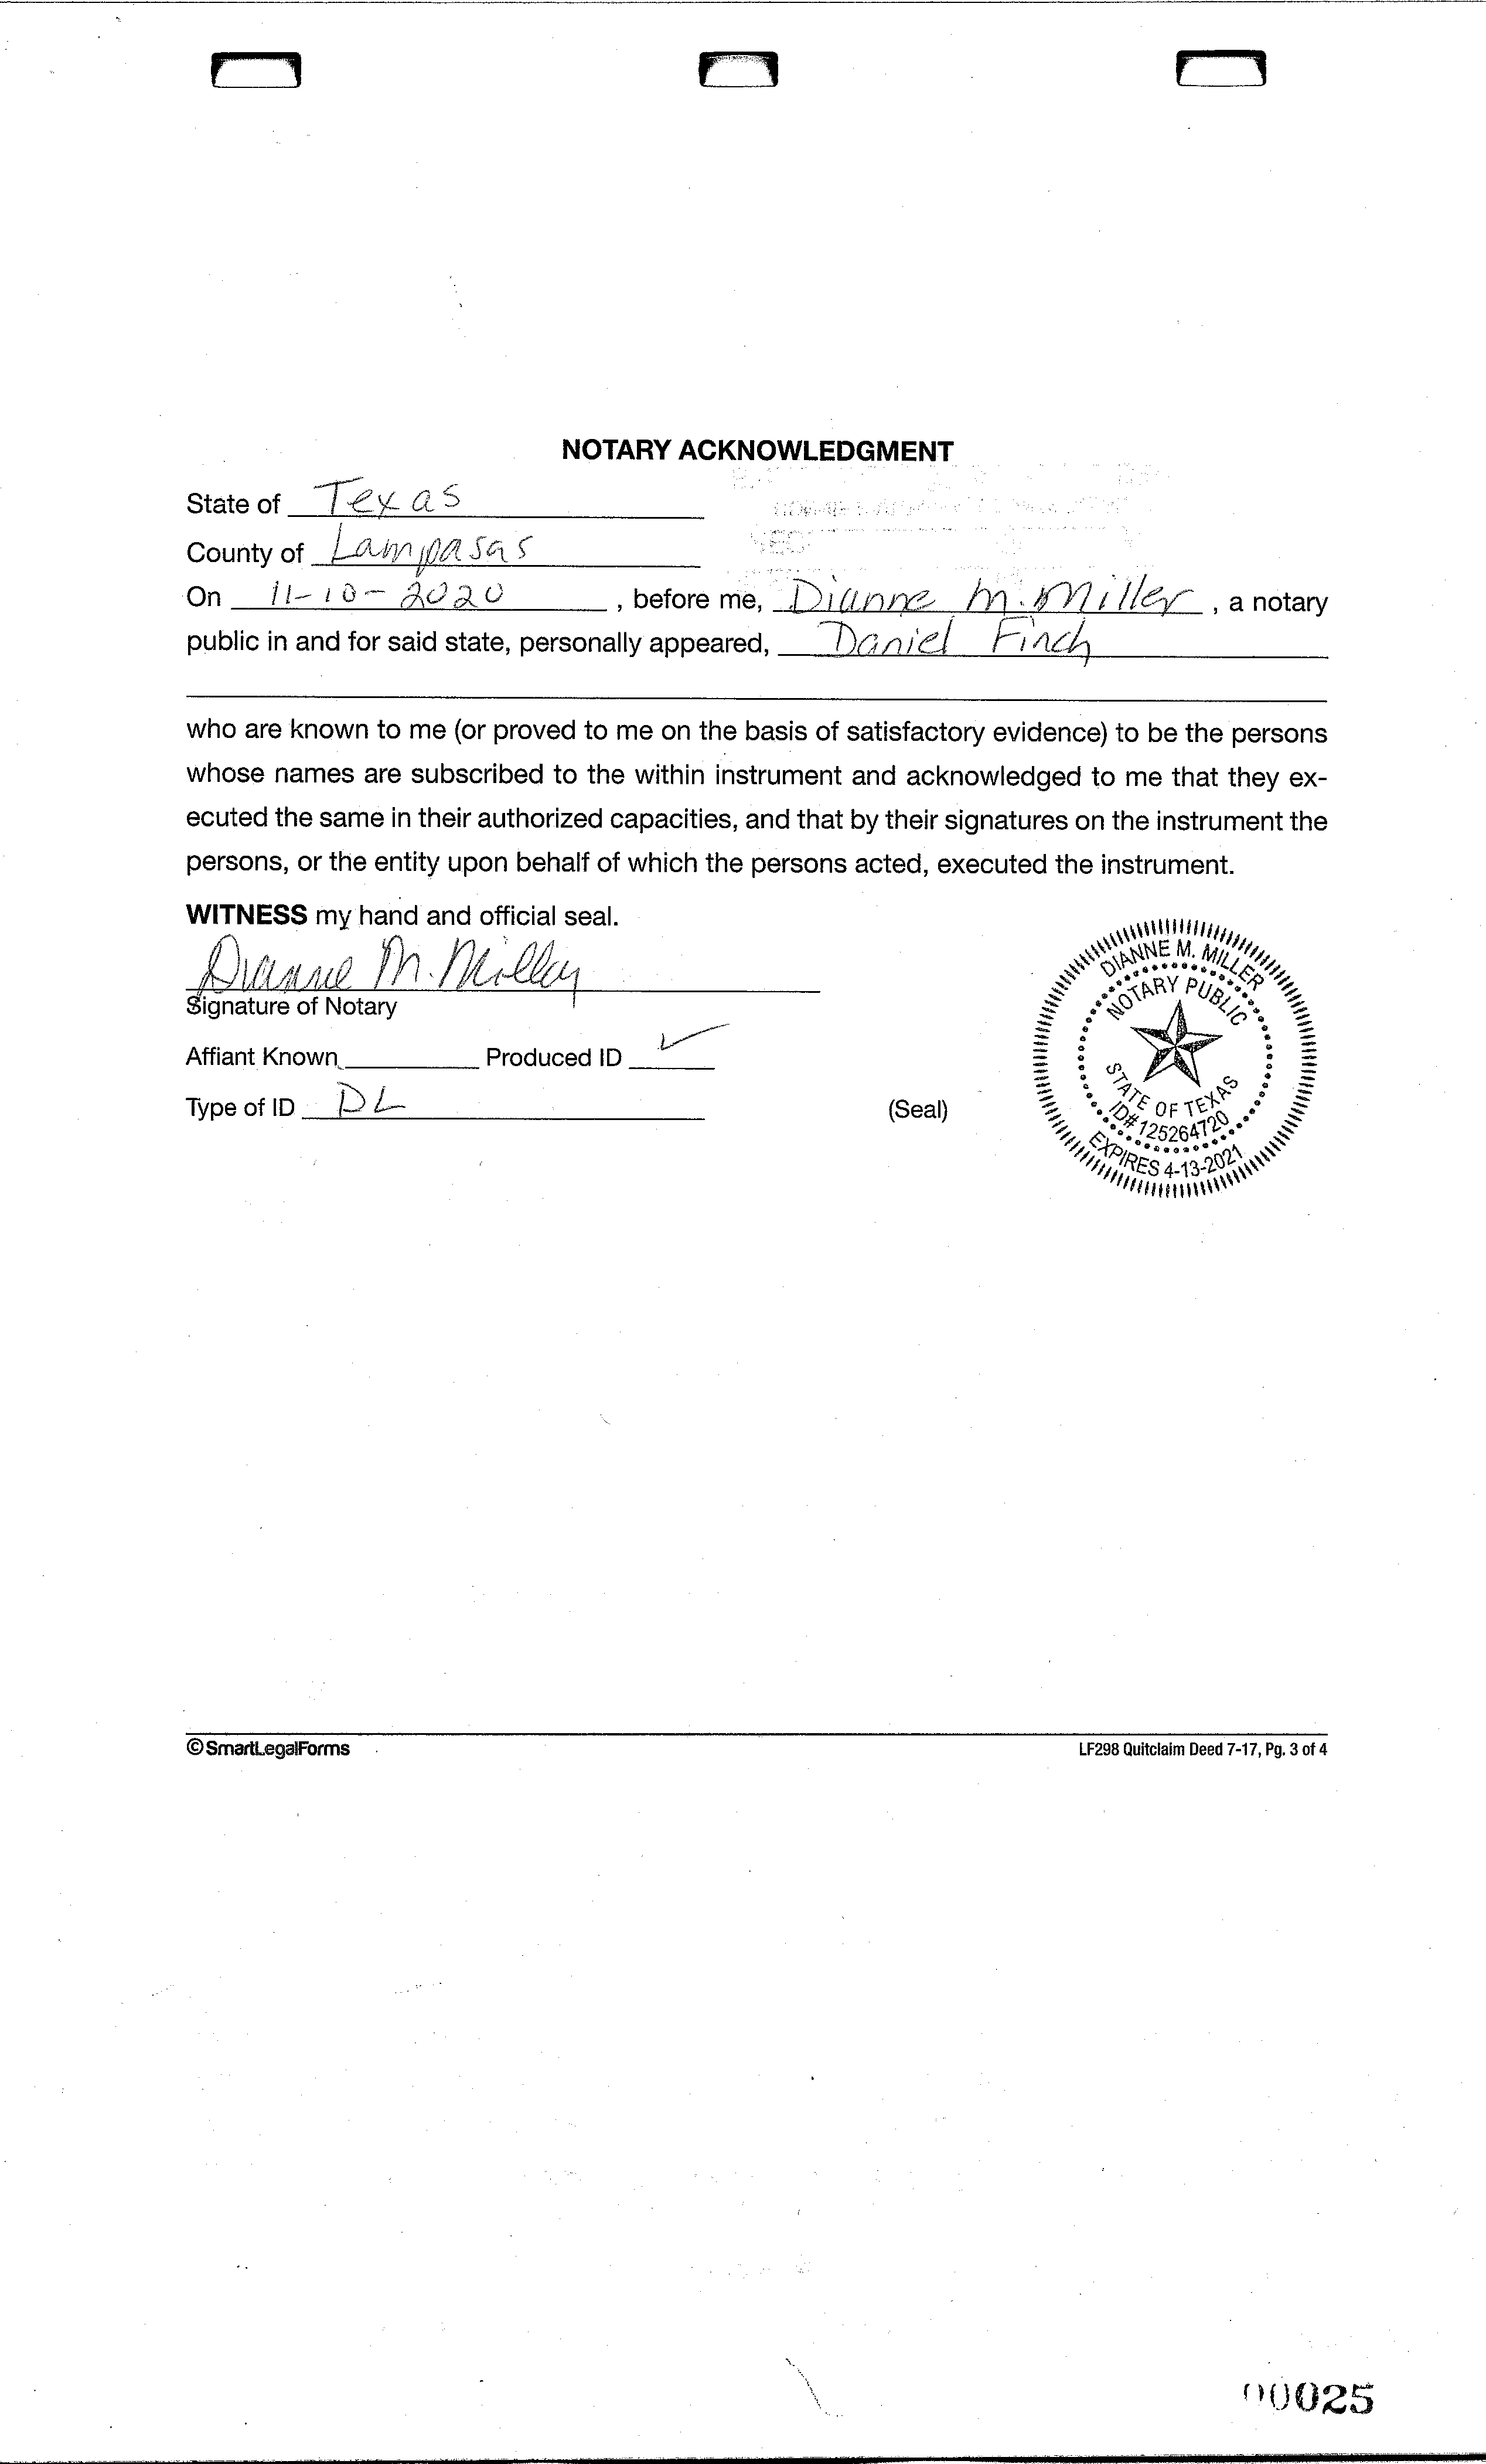 NOTARY ACKNOWLEDGMENT
State of Texas
County of Lampasas
On 11-10-2020, before me, Dianne M. Miller, a notary
public in and for said state, personally appeared, Daniel Finch
who are known to me (or proved to me on the basis of satisfactory evidence) to be the persons
whose names are subscribed to the within instrument and acknowledged to me that they ex-
ecuted the same in their authorized capacities, and that by their signatures on the instrument the
persons, or the entity upon behalf of which the persons acted, executed the instrument.
WITNESS my hand and official seal.
Dianne M. Miller
Signature of Notary
Affiant Known Produced ID ✓
Type of ID DL
(Seal)
DIANNE M. MILLER
NOTARY PUBLIC
STATE OF TEXAS
ID# 125264720
EXPIRES 4-13-2021
©SmartLegalForms
LF298 Quitclaim Deed 7-17, Pg. 3 of 4
00025